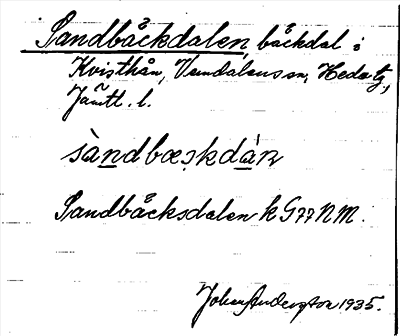 Sandbäckdalen, bäckdal i
Kvisthån, Vemdalens sn, Hede tg,
Jämtl. l.
sàndbæskdán
Sandbäcksdalen k G77 NM.
Johan Andersson 1935.